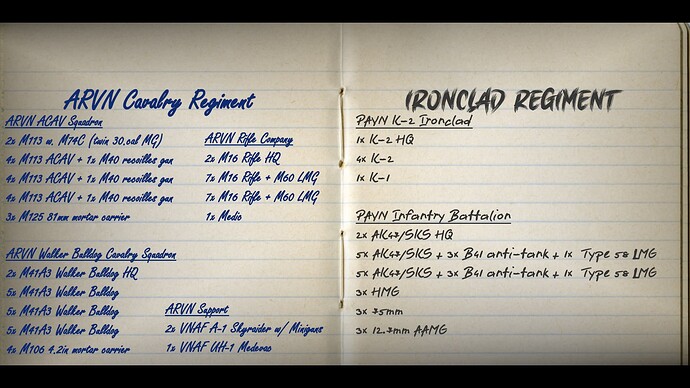 ARVN Cavalry Regiment
ARVN ACAV Squadron
2x M113 w. M74C (twin 30.cal MG)
4x M113 ACAV + 1x M40 recoilles gun
4x M113 ACAV + 1x M40 recoilles gun
4x M113 ACAV + 1x M40 recoilles gun
3x M125 81mm mortar carrier
ARVN Rifle Company
2x M16 Rifle HQ
7x M16 Rifle + M60 LMG
7x M16 Rifle + M60 LMG
1x Medic
ARVN Walker Bulldog Cavalry Squadron
2x M41A3 Walker Bulldog HQ
5x M41A3 Walker Bulldog
5x M41A3 Walker Bulldog
5x M41A3 Walker Bulldog
4x M106 4.2in mortar carrier
ARVN Support
2x VNAF A-1 Skyraider w/ Miniguns
1x VNAF UH-1 Medevac
IRONCLAD REGIMENT
PAVN K-2 Ironclad
1x K-2 HQ
4x K-2
1x K-1
PAVN Infantry Battalion
2x AK47/SKS HQ
5x AK47/SKS + 3x B41 anti-tank + 1x Type 58 LMG
5x AK47/SKS + 3x B41 anti-tank + 1x Type 58 LMG
3x HMG
3x 75mm
3x 12.7mm AAMG